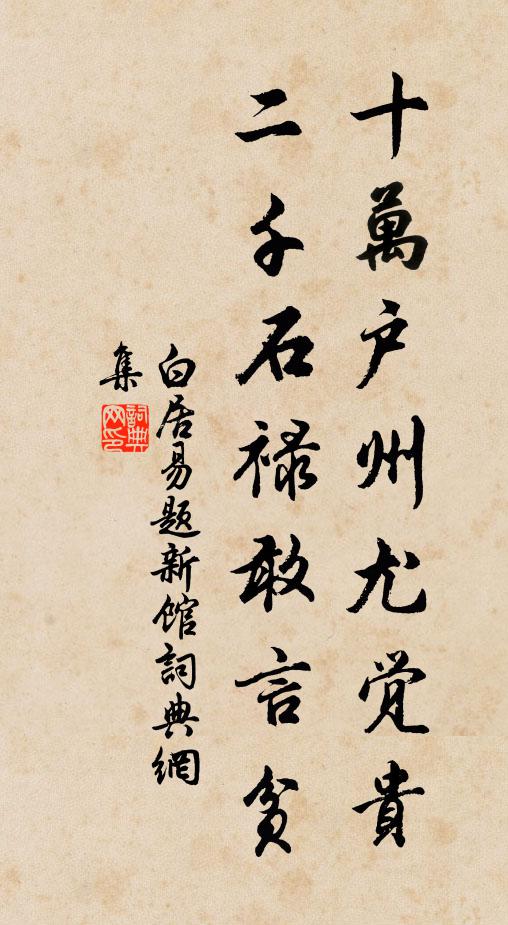 十萬户州尤覺貴
二千石禄敢言貧
白居易题新館詞典網
集
詞典网印